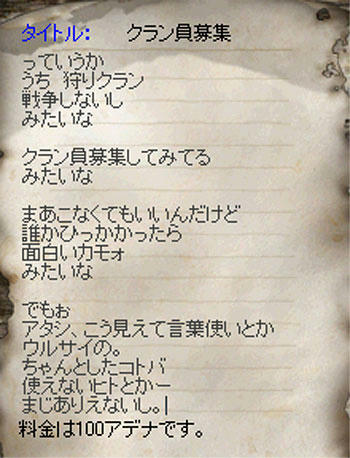 タイトル: クラン員募集
っていうか
うち 狩りクラン
戦争しないし
みたいな
クラン員募集してみてる
みたいな
まあこなくてもいいんだけど
誰かひっかかったら
面白いカモォ
みたいな
でもぉ
アタシ、こう見えて言葉使いとか
ウルサイの。
ちゃんとしたコトバ
使えないヒトとかー
まじありえないし。|
料金は100アデナです。